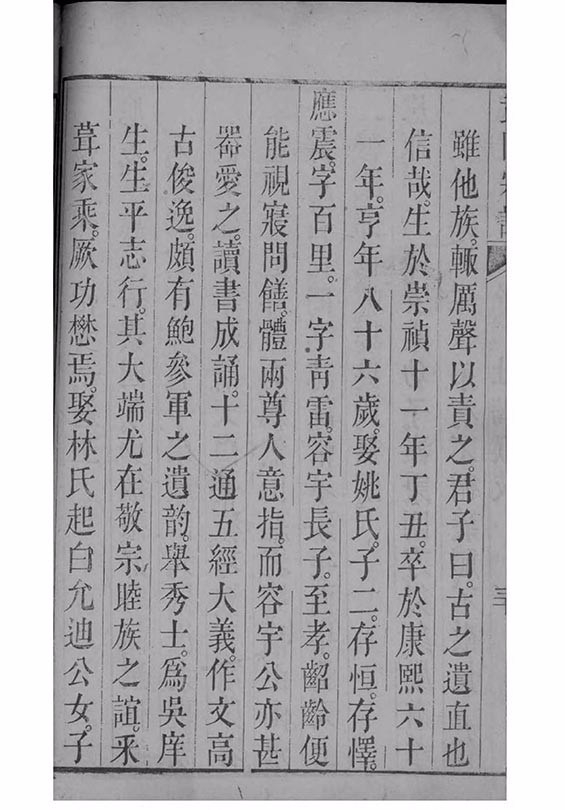 雖他族。輙厲聲以責之。君子曰。古之遺直也
信哉。生於崇禎十一年丁丑。卒於康熙六十
一年。亨年八十六歲。娶姚氏。子二。存恒。存懌。
應震。字百里。一字靑雷。容宇長子。至孝。齠齡便
能視寢問饍。體兩尊人意指。而容宇公亦甚
器愛之。讀書成誦。十二通五經大義。作文高
古俊逸。頗有鮑參軍之遺韵。舉秀士。爲吳庠
生。生平志行。其大端尤在敬宗睦族之誼。釆
葺家乘。厥功懋焉。娶林氏起白允迪公女。子